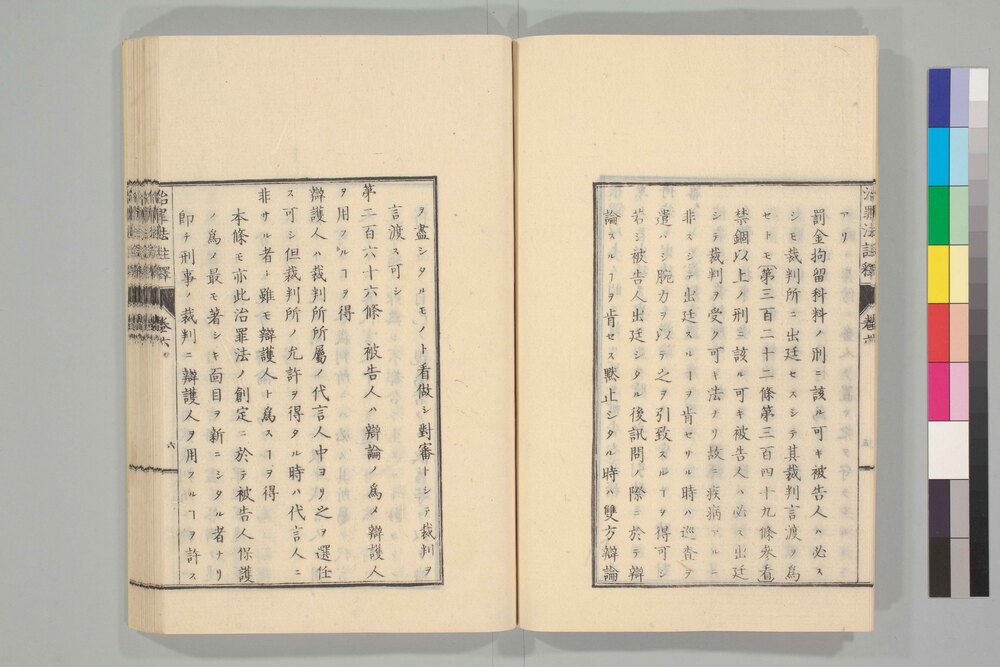 治罪法註釋 卷六
アリ
罰金拘留科料ノ刑ニ該ル可キ被告人ハ必ス
シモ裁判所ニ出廷セスシテ其裁判言渡ヲ爲
セトモ第三百二十二條第三百四十九條參看
禁錮以上ノ刑ニ該ル可キ被告人ハ必ス出廷
シテ裁判ヲ受ク可キ法ナリ故ニ疾病アルニ
非スシテ出廷スルヿヲ肯セサル時ハ巡査ヲ
遣ハシ腕力ヲ以テ之ヲ引致スルヿヲ得可シ
若シ被告人出廷シタル後訊問ノ際ニ於テ辯
論スルヿヲ肯セス默止シタル時ハ雙方辯論
ヲ盡シタルモノト看做シ對審トシテ裁判ヲ
言渡ス可シ
第二百六十六條 被告人ハ辯論ノ爲メ辯護人
ヲ用フルヿヲ得
辯護人ハ裁判所所屬ノ代言人中ヨリ之ヲ選任
ス可シ但裁判所ノ允許ヲ得タル時ハ代言人ニ
非サル者ト雖モ辯護人ト爲スヿヲ得
本條モ亦此治罪法ノ創定ニ於テ被告人保護
ノ爲メ最モ著シキ面目ヲ新ニシタル者ナリ
卽チ刑事ノ裁判ニ辯護人ヲ用フルヿヲ許ス
治罪法註釋 卷六
六